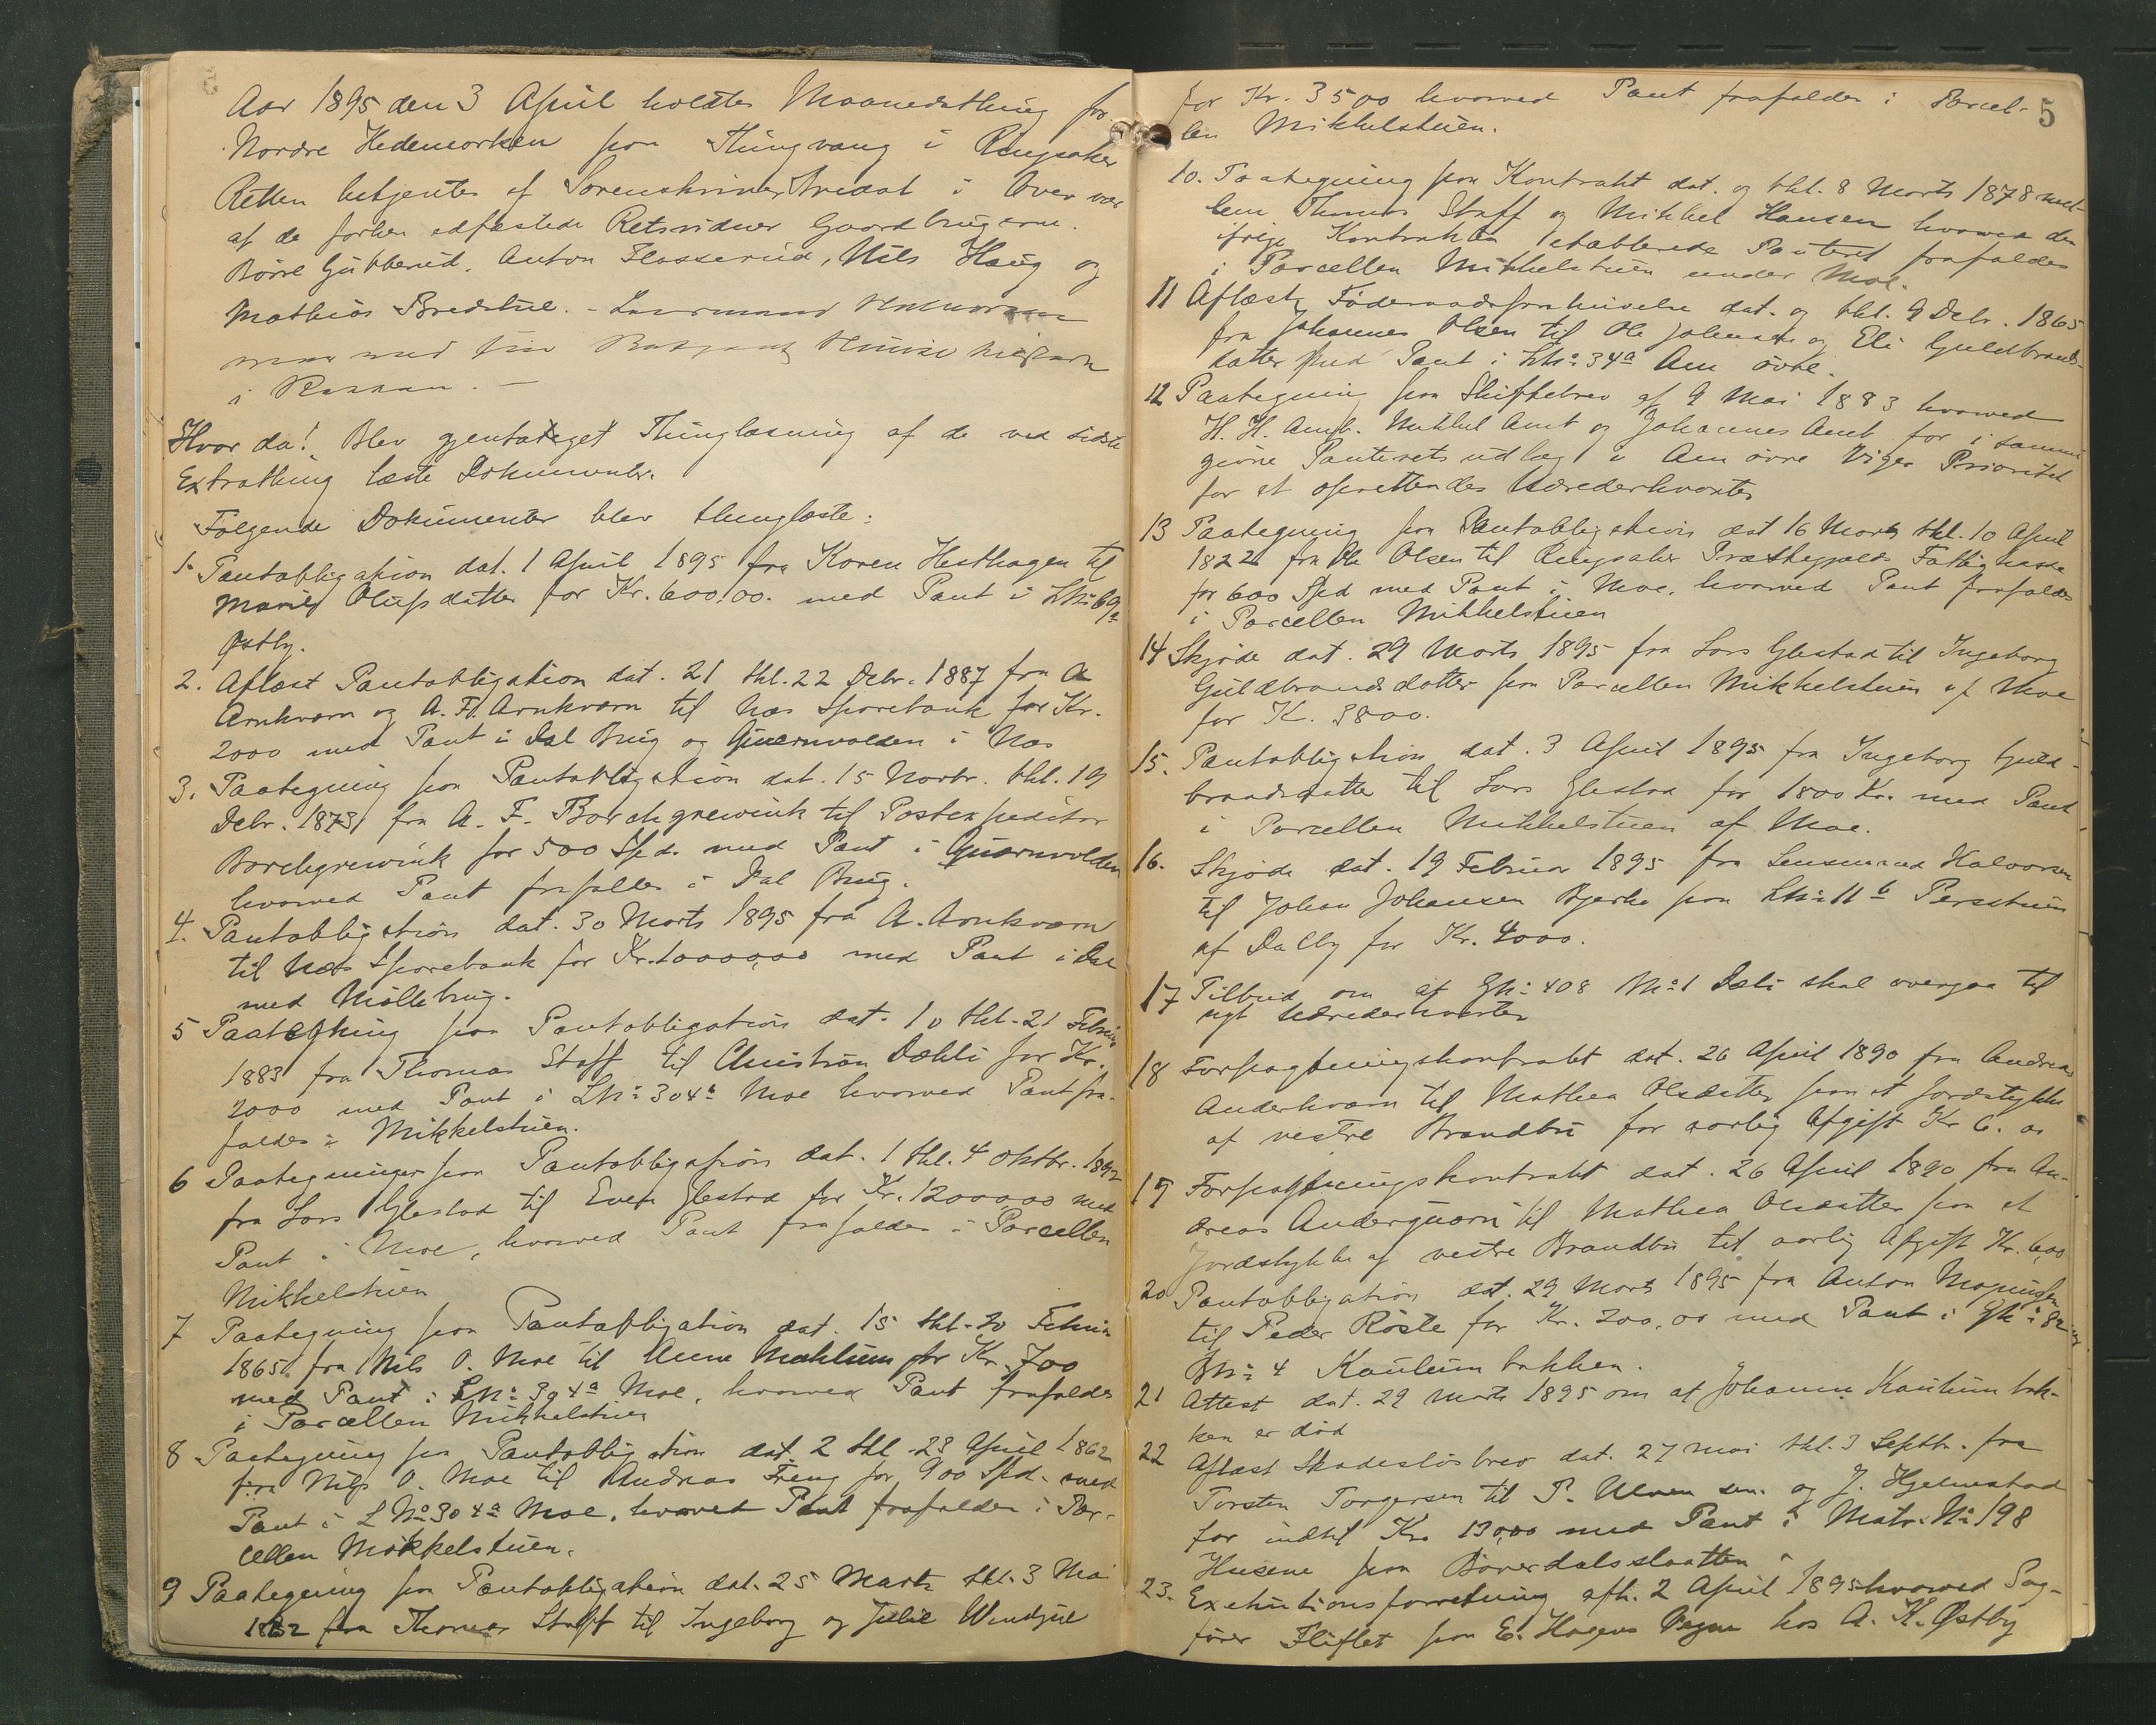 Aar 1895 den 3 April holdtes Maanedsthing for
Nordre Hedemarken paa Thingvang i Ringsaker
Retten betjentes af Sorenskriver Aredal i Overvær
af de forhen edfæstede Retsvidner Gaardbrugerne
Börre Gubberud, Anton Flasserud, Nils Haug og
Mathias Bredstue. - Lensmand Halvorsen
med sin
i
Hvor da! Blev gjentaget Thinglæsning af de ved sidste
Extrathing læste Dokumenter.
Følgende Dokumenter blev thinglæste:
1. Pantobligation dat. 1 April 1895 fra Karen Hesthagen til
Marie Olufsdatter for Kr. 600,00. med Pant i LNo 69a
Østby.
2. Aflæst Pantobligation dat. 21 thl. 22 Debr. 1887 fra A
Arnkværn og A. Fl. Arnkværn til Næs Sparebank for Kr.
2000 med Pant i Dal Brug og Quærnvolden i Næs
3. Paategning paa Pantobligation dat. 15 Novbr. thl. 19
Debr. 1873 fra A. F. Borchgrewink til Postexpeditör
Borchgrewink for 500 Spd. med Pant i Quærnvolden
hvorved Pant frafaldes i Dal Brug.
4. Pantobligation dat. 30 Marts 1895 fra A. Arnkværn
til Næs Sparebank for Kr. 10000,00 med Pant i Dal
med Möllebrug.
5 Paategning paa Pantobligation dat. 10 thl. 21 Februar
1883 fra Thomas Staff til Christian Dæhli for Kr.
2000 med Pant i LNo 304a Moe hvorved Pant fra-
faldes i Mikkelstuen.
6 Paategninger paa Pantobligation dat. 1 thl. 4 Oktbr. 1892
fra Lars Glestad til Even Glestad for Kr. 12000,00 med
Pant i Moe, hvorved Pant frafaldes i Parcellen
Mikkelstuen
7 Paategning paa Pantobligation dat. 15 thl. 20 Februar
1865 fra Nils O. Moe til Anne Mæhlum for Kr. 700
med Pant i LNo 304a Moe, hvorved Pant frafaldes
i Parcellen Mikkelstuen
8 Paategning paa Pantobligation dat. 2 thl 23 April 1862
fra Nils O. Moe til Andreas Freng for 900 Spd. med
Pant i LNo 304a Moe, hvorved Pant frafaldes i Par-
cellen Mikkelstuen.
9 Paategning paa Pantobligation dat. 25 Marts thl. 3 Mai
1882 fra Thomas Staff til Ingeborg og Julie Windjue
5
for Kr. 3500 hvorved Pant frafaldes i Parcel-
len Mikkelstuen.
10. Paategning paa Kontrakt dat. og thl. 8 Marts 1878 mel-
lem Thomas Staff og Mikkel Hansen hvorved den
ifølge Kontrakten etablerede Panteret frafaldes
i Parcellen Mikkelstuen under Moe.
11 Aflæst Føderaadsforskrivelse dat. og thl. 9 Debr. 1865
fra Johannes Olsen til Ole Johansen og Eli Guldbrands-
datter med Pant i LNo 34a Am övre.
12 Paategning paa Skiftebrev af 9 Mai 1883 hvorved
H. H. Amb. Mikkel Amb og Johannes Amb for i samme
givne Panterets udlæg i Am övre Viger Prioritet
for et oprettendes
13 Paategning paa Pantobligation dat 16 Marts thl. 10 April
1822 fra Ole Olsen til Ringsaker Præstegjelds Fattigkasse
for 600 Spd med Pant i Moe, hvorved Pant frafaldes
i Parcellen Mikkelstuen
14 Skjøde dat. 29 Marts 1895 fra Lars Glestad til Ingeborg
Guldbrandsdatter paa Parcellen Mikkelstuen af Moe
for K. 3800.
15. Pantobligation dat. 3 April 1895 fra Ingeborg Guld-
brandsdatter til Lars Glestad for 1800 Kr. med Pant
i Parcellen Mikkelstuen af Moe.
16. Skjøde dat. 19 Februar 1895 fra Lensmand Halvorsen
til Johan Johansen Bjerke paa LNo 11b Persstuen
af Dalby for Kr. 4000.
17 Tilbud om at GNo 408 No 1 Dæli skal overgaa til
nyt
18 Forpagtningskontrakt dat. 26 April 1890 fra Andreas
Anderkværn til Mathea Olsdatter paa et Jordstykke
af vestre Brandbu for aarlig Afgift Kr 6. 00
19 Forpagtningskontrakt dat. 26 April 1890 fra An-
dreas Anderquærn til Mathea Olsdatter paa et
Jordstykke af vestre Brandbu til aarlig Afgift Kr. 6,00
20 Pantobligation dat. 29 Marts 1895 fra Anton Magnussen
til Peder Röste for Kr. 200,00 med Pant i GNo 82
BNo 4 Kaulumbakken.
21 Attest dat. 29 Marts 1895 om at Johannes Kaulumbak-
ken er död
22 Aflæst Skadeslösbrev dat. 27 Mai thl. 3 Septbr. fra
Torsten Torgersen til P. Ulven sen. og J. Hjelmstad
for indtil Kr 1300,00 med Pant i Matr. No 198
Husene paa Böverdalsslaatten
23. Exekutionsforretning afh. 2 April 1895 hvorved Sag-
fører Fliflet paa E. Hagens Vegne hos A. K. Østby